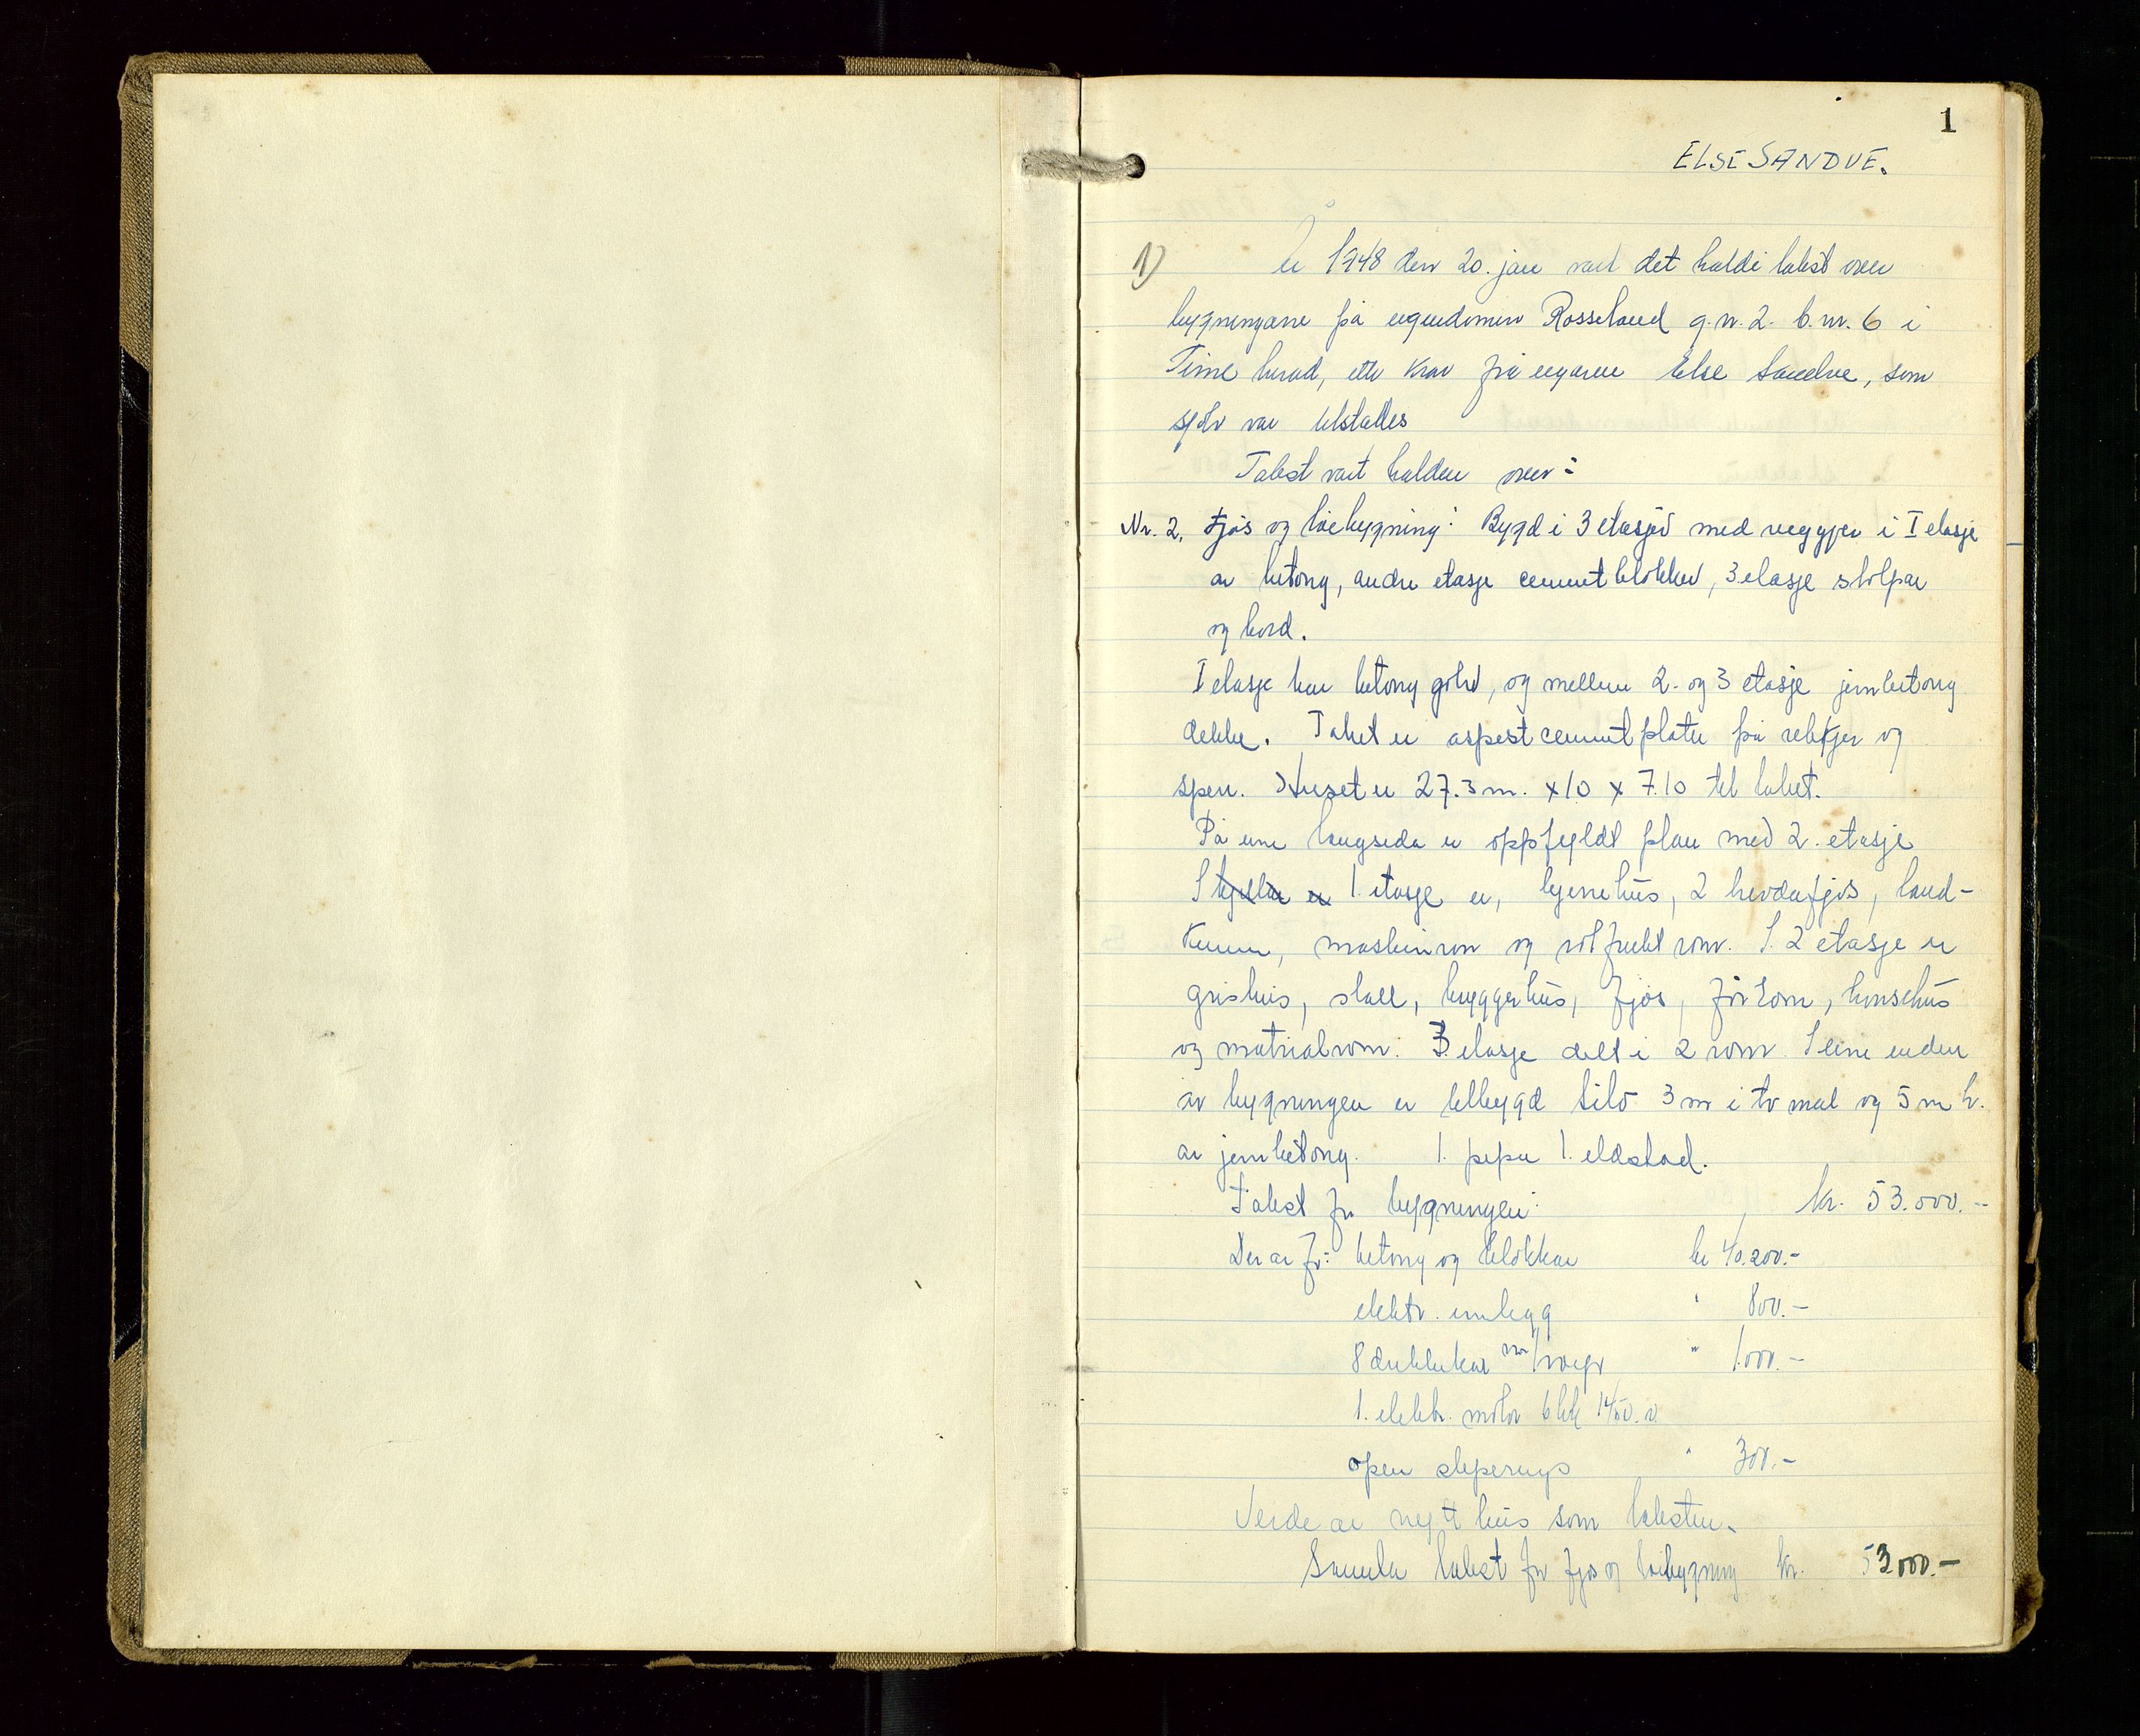 1
ELSE SANDVE.
1) År 1948 den 20. jan vart det haldi takst over
bygningane på eigendomen Rosseland g.n. 2. b.nr. 6 i
Time herad, ette krav frå eigaren Else Sandve, som
sjølv var tilstades
Takst vart halden over:
Nr. 2. Fjøs og løebygning: Bygd i 3 etasjer med vegger i I etasje
av betong, andre etasje cementblokker, 3 etasje stolpar
og bord.
I etasje har betong golv, og mellom 2. og 3 etasje jernbetong
dekke. Taket er aspestcementplater på rekkjer og
sperr. Huset er 27.3 m. x 10 x 7.10 til taket.
På eine langsida er oppfyldt plan med 2. etasje
I kjellar er 1. etasje er, kjerrehus, 2 hevdafjøs, land-
kum, maskinrom og rotfrukt rom. I. 2 etasje er
grishus, stall, bryggerhus, fjøs, fôr rom, hønsehus
og matrialrom. 3. etasje delt i 2 rom. I eine enden
av bygningen er tilbygd silo 3 m i tv mål og 5 m h.
av jernbetong. 1. pipe 1. eldstad.
Takst for bygningen: kr. 53.000.-
Der av for: betong og blokkar kr 40.200.-
elektr. innlegg " 800.-
8 drikkekar m/røyr " 1000.-
1. elektr. motor 6 hk 1450. o.
open sleperings " 300.-
Verde av nytt hus som taksten.
Samla takst for fjøs og løebygning kr. 53000.-